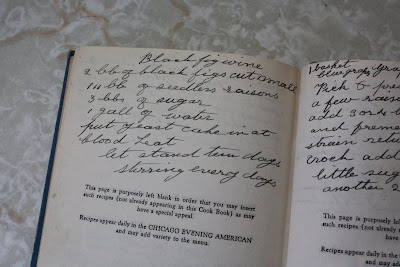 Black fig wine
2 lbs of black figs cut small
1 lb of seedless raisons
3 lbs of sugar
1 gall of water
put yeast cake in at
blood heat
let stand ten days
stirring every days
This page is purposely left blank in order that you may insert
such recipes (not already appearing in this Cook Book) as may
have a special appeal.
Recipes appear daily in the CHICAGO EVENING AMERICAN
and may add variety to the menu.
1 basket
blue grapes
Pick & pre
a few rais
add 3
and
strain
crock add
little sug
another 2
This page is purposely l
such recipes (not alread
Recipes appear daily in the
and may